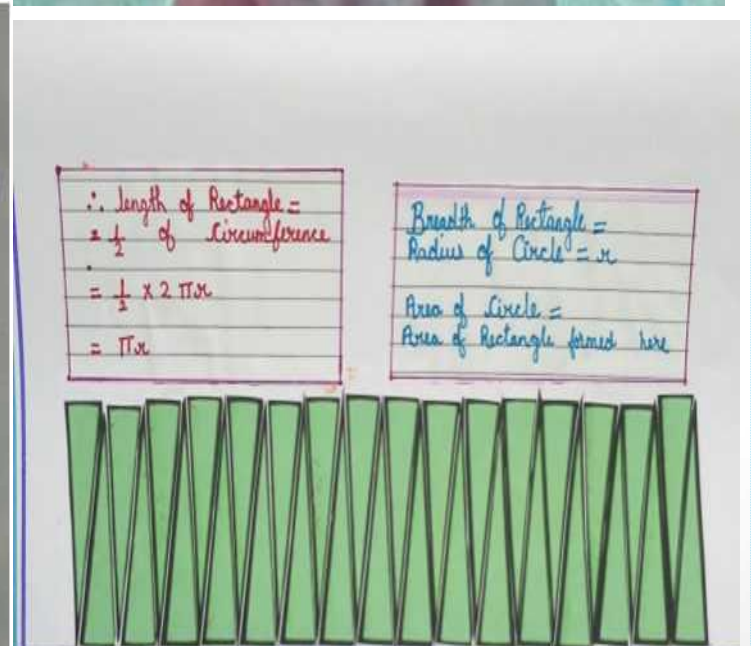 ∴ length of Rectangle =
= 1/2 of Circumference
= 1/2 × 2 πr
= πr
Breadth of Rectangle =
Radius of Circle = r
Area of Circle =
Area of Rectangle formed here